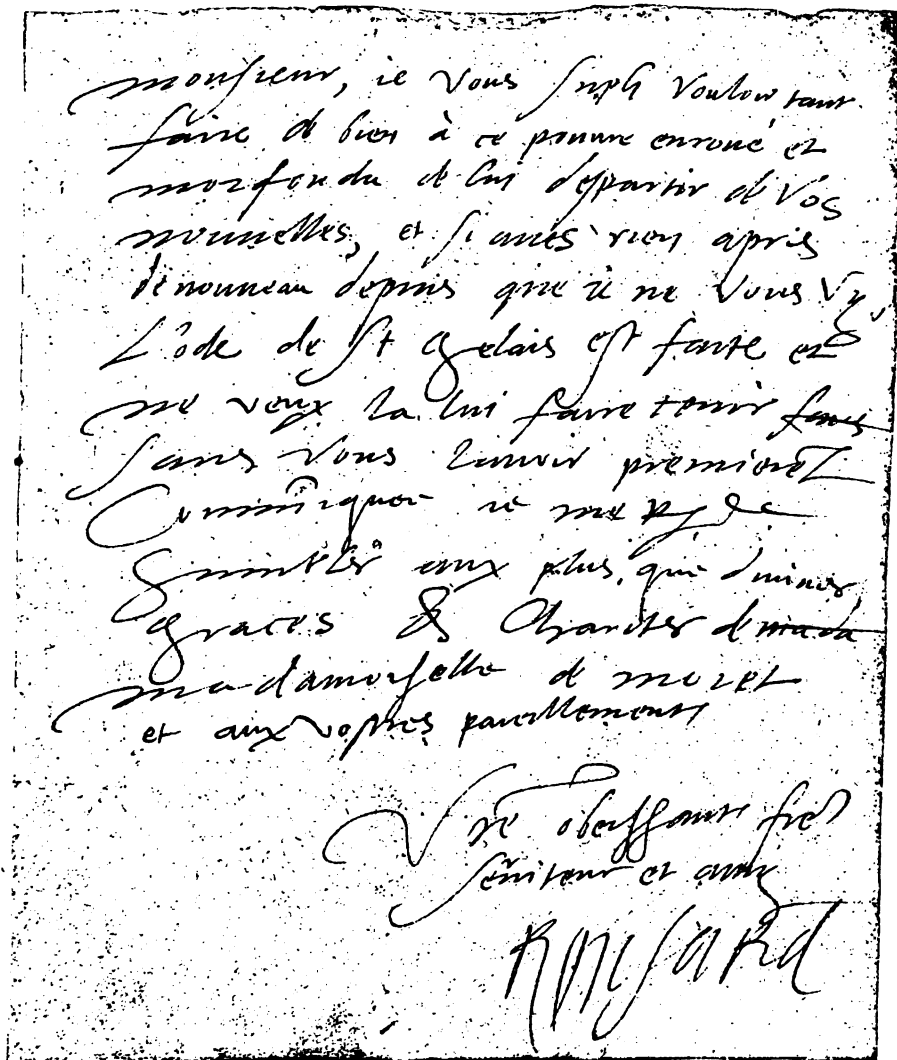 monsieur, ie vous supli vouloir tant
faire de bien à ce pouure enroué et
morfondu de lui despartir de vos
nouuelles, et si aués rien apris
de nouueau depuis que ie ne vous vy,
L'ode de St Gelais est faite et
ne veux la lui faire tenir sans
sans vous l'auoir premieremt
Communiquer ie me
aux plus que diuines
graces & Charites de mada
madamoyselle de morel
et aux vostres pareillement
Vre obeissant frere
seruiteur et amy
Ronsard